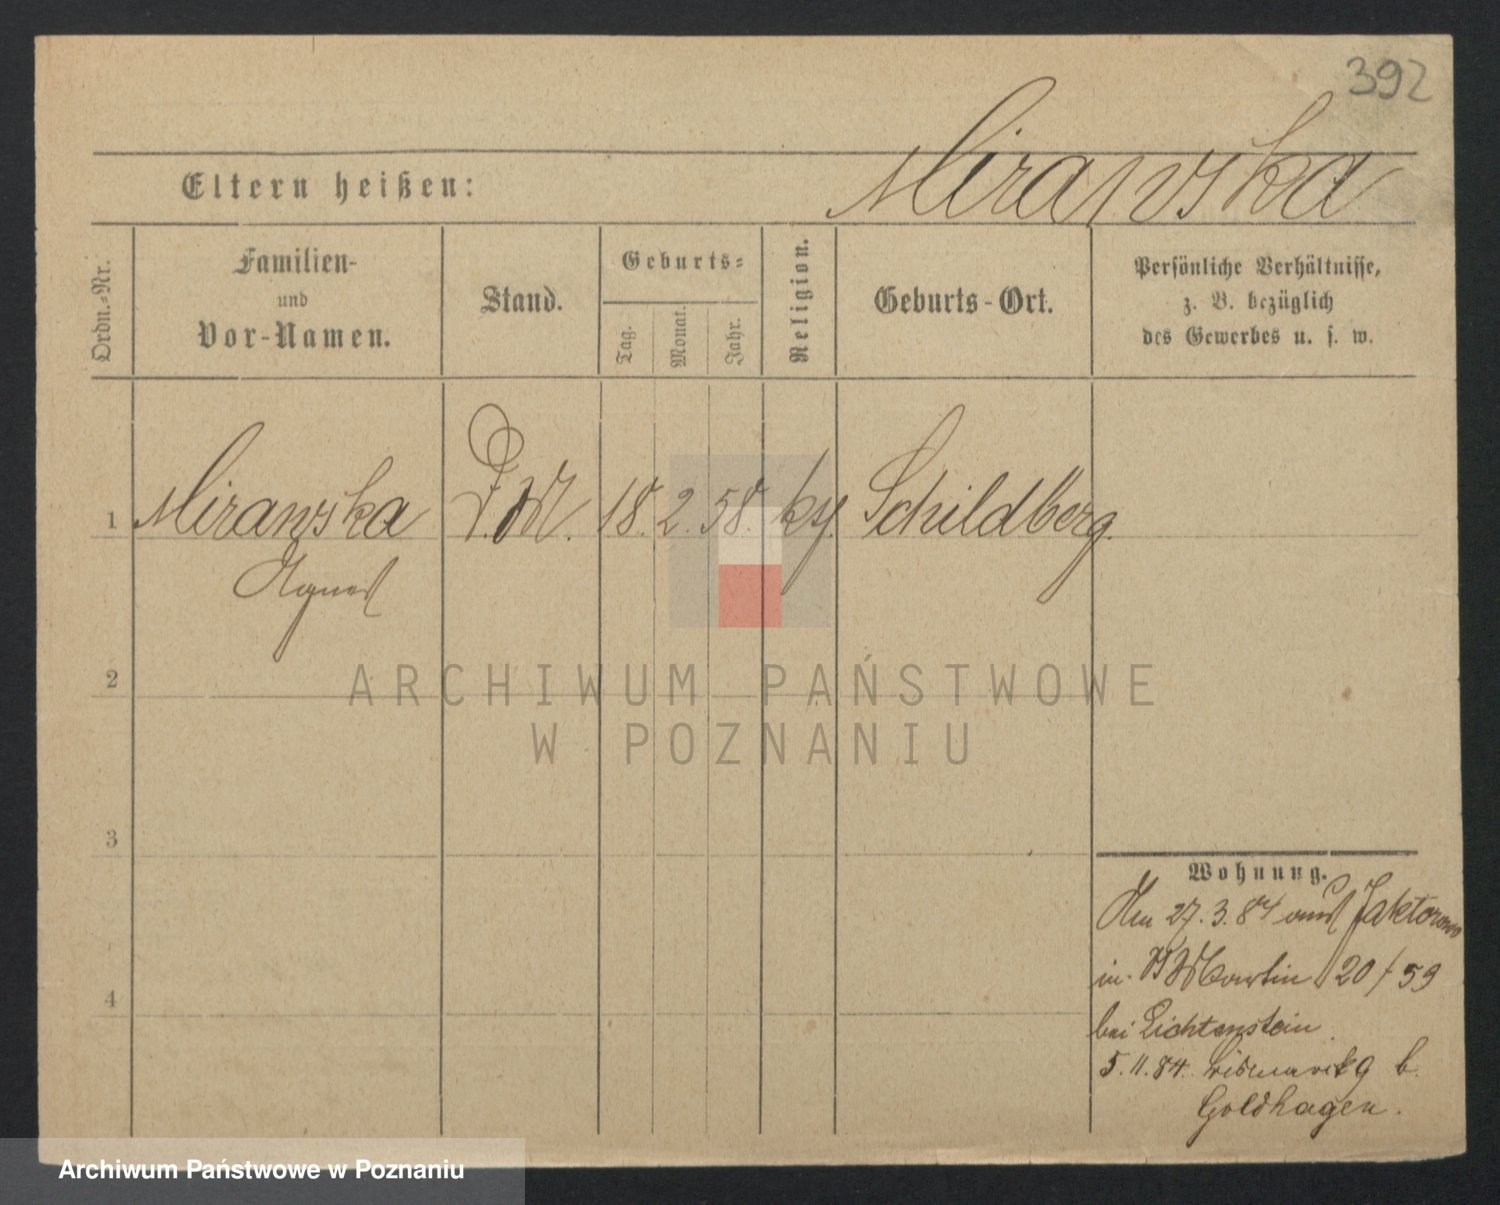 392
Mirawska
Eltern heißen:
Ordn.-Nr.
Familien-
und
Vor-Namen.
Stand.
Geburts-
Tag.
Monat.
Jahr.
Religion.
Geburts-Ort.
Persönliche Verhältnisse,
z. B. bezüglich
des Gewerbes u. s. w.
1 Mirawska D.M. 18. 2. 58. Schildberg.
Agnes
2
ARCHIWUM PAŃSTWOWE
W POZNANIU
3
4
Wohnung.
Am 27.3.84 aus Jaktorowo
in Martin 20/59
bei Lichtenstein.
5.11.84. b.
Goldhagen.
Archiwum Państwowe w Poznaniu